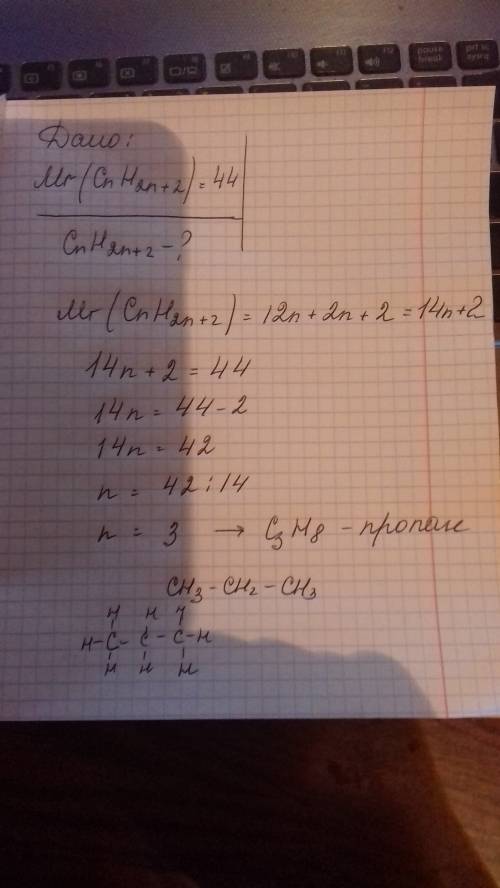 pause break
prt sc sysrq
Дано:
Mr(CnH2n+2) = 44
CnH2n+2 - ?
Mr(CnH2n+2) = 12n + 2n + 2 = 14n + 2
14n + 2 = 44
14n = 44 - 2
14n = 42
n = 42 : 14
n = 3 → C3H8 - пропан
CH3 - CH2 - CH3
H H H
H - C - C - C - H
H H H